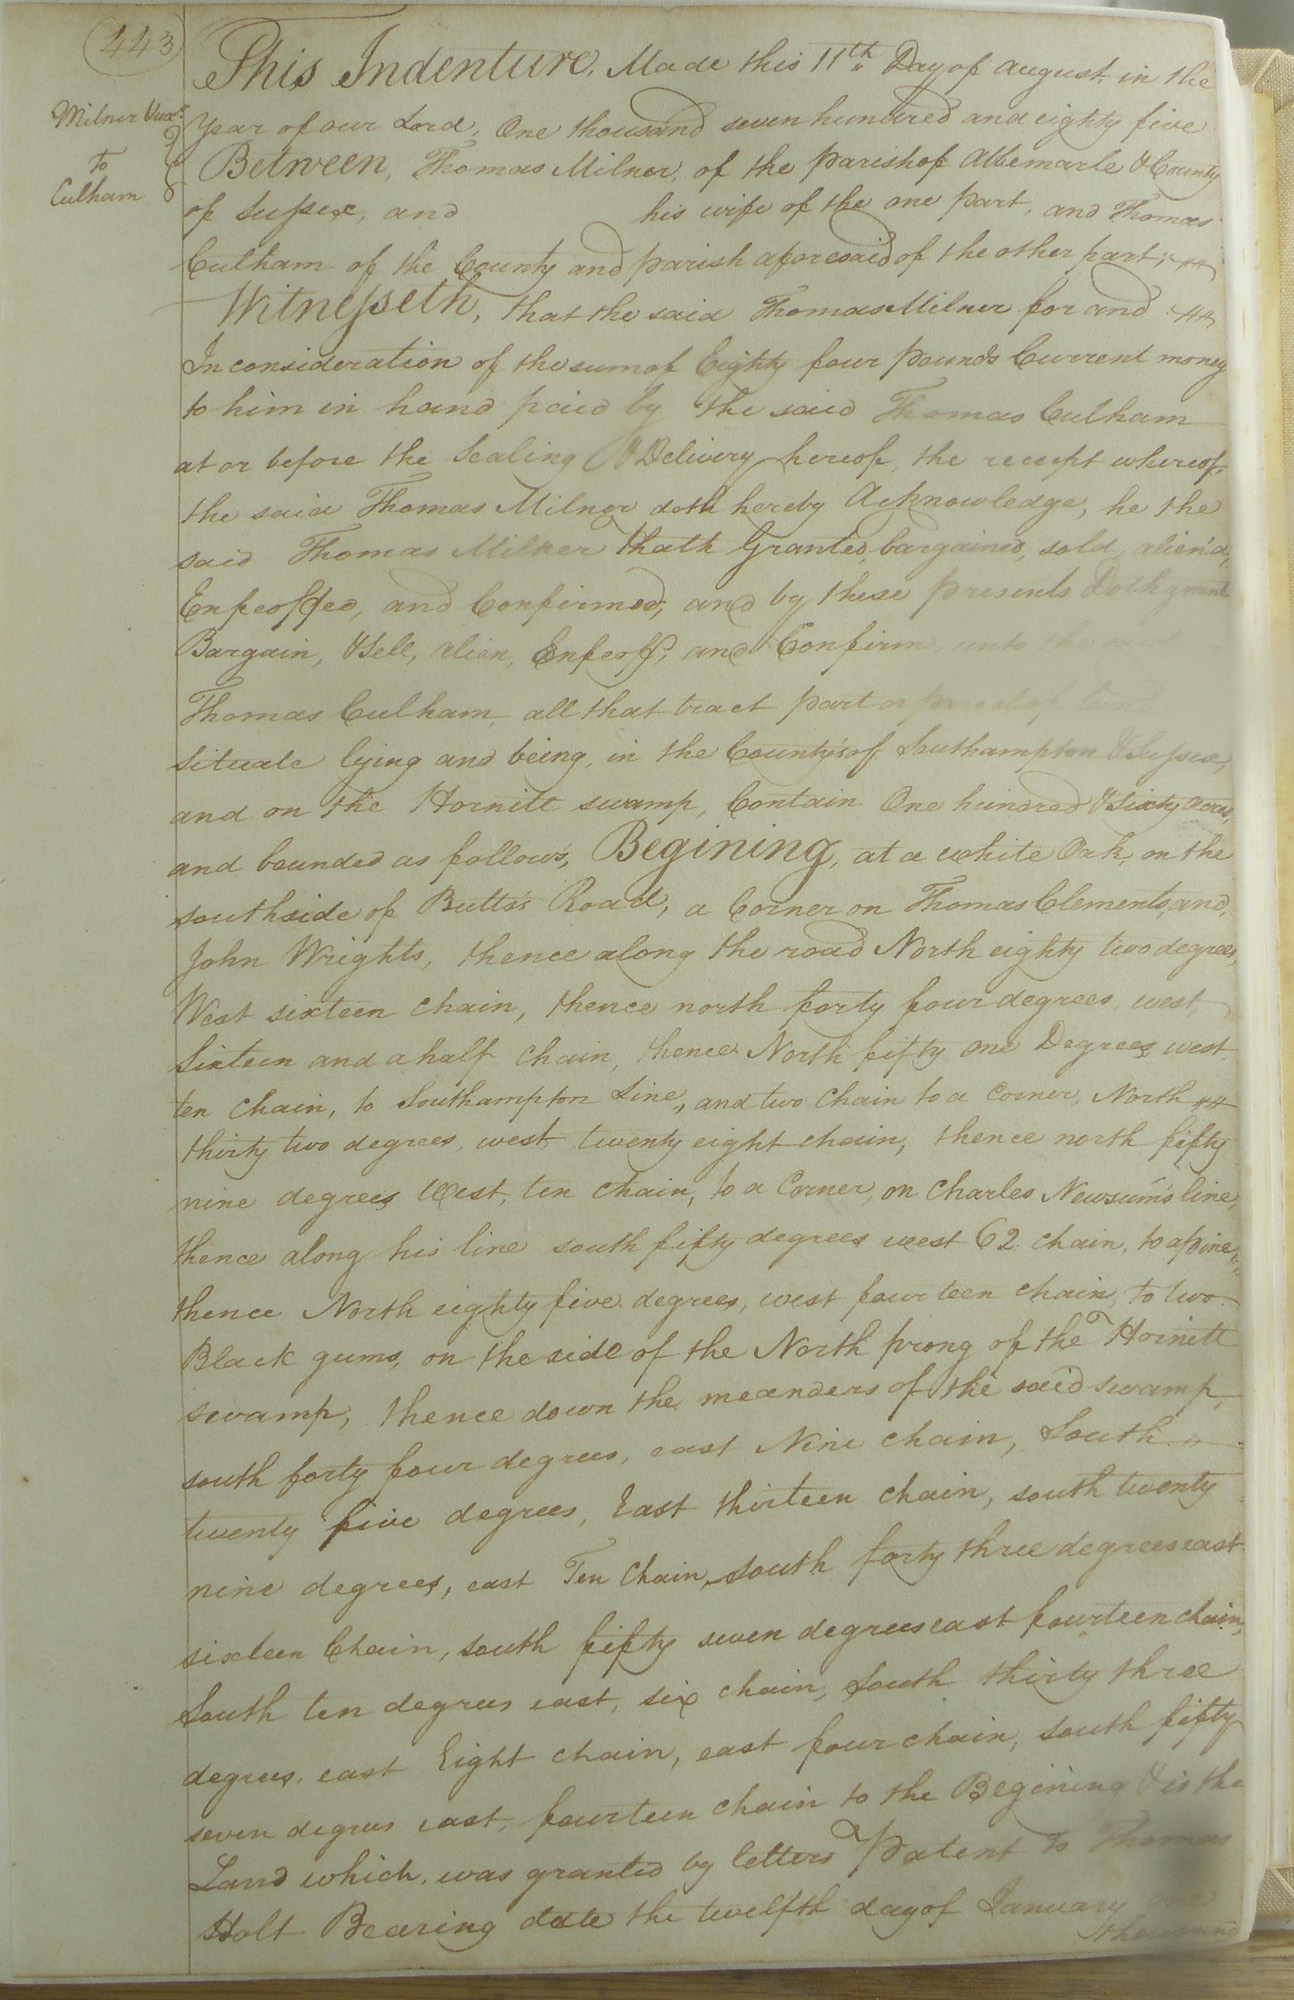 443
Milner Uxr.
To
Culham
This Indenture, Made this 11th. Day of august in the
Year of our Lord, One thousand seven hundred and eighty five
Between, Thomas Milner, of the parish of Albemarle & County
of Sussex, and his wife of the one part, and Thomas
Culham of the County and parish aforesaid of the other part;
Witnesseth, that the said Thomas Milner for and
In consideration of the sum of Eighty four pounds Current money
to him in hand paid by the said Thomas Culham
at or before the Sealing & Delivery hereof, the receipt whereof
the said Thomas Milner doth hereby Acknowledge, he the
said Thomas Milner thath Granted, bargained, sold, alien'd,
Enfeoffed, and Confirmed, and by these presents Doth grant
Bargain, & Sell, alien, Enfeoff, and Confirm, unto the said
Thomas Culham, all that tract part or parcel of land
Situate lying and being, in the County's of Southampton & Sussex,
and on the Hornitt swamp, Contain One hundred & Sixty acres,
and bounded as follows, Begining, at a white Oak, on the
southside of Butts's Road, a Corner on Thomas Clements, and,
John Wrights, thence along the road North eighty two degrees,
West sixteen chain, thence north forty four degrees, west,
Sixteen and a half chain, thence North fifty one Degrees, west
ten chain, to Southampton Line, and two chain to a Corner, North
thirty two degrees, west, twenty eight chain, thence north fifty
nine degrees West, ten chain, to a Corner, on Charles Newsum's line,
thence along his line south fifty degrees west 62 chain, to a pine,
thence North eighty five degrees, west fourteen chain, to two
Black gums, on the side of the North prong of the Hornitt
swamp, thence down the meanders of the said swamp,
south forty four degrees, east Nine chain, South
twenty five degrees, East thirteen chain, south twenty
nine degrees, east Ten Chain, South forty three degrees east
sixteen Chain, south fifty seven degrees east fourteen chain,
South ten degrees east, six chain, South thirty three
degrees, east Eight chain, east four chain, south fifty
seven degrees east, fourteen chain to the Begining & is the
Land which, was granted by letters Patent to Thomas
Holt Bearing date the twelfth day of January one
thousand